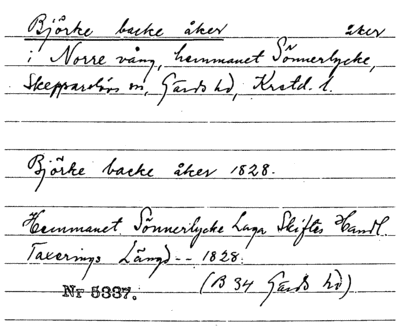 Björke backe åker åker
i Norre vång, hemmanet Sönnerlycke,
Skepparslövs sn, Gärds hd, Krstd. l.
Björke backe åker 1828.
Hemmanet Sönnerlycke Laga Skiftes Handl.
Taxerings Längd -- 1828.
(B 34 Gärds hd)
Nr 5337.